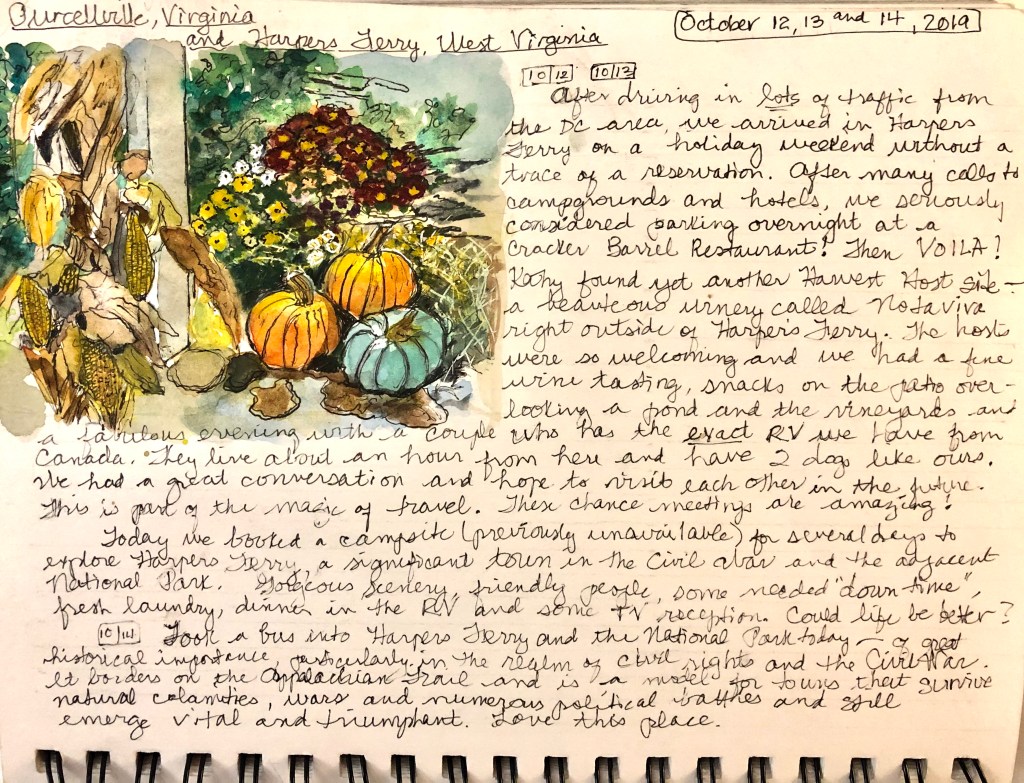 Purcellville, Virginia
and Harpers Ferry, West Virginia
October 12, 13 and 14, 2019
10/12 10/13
After driving in lots of traffic from
the DC area, we arrived in Harpers
Ferry on a holiday weekend without a
trace of a reservation. After many calls to
campgrounds and hotels, we seriously
considered parking overnight at a
Cracker Barrel Restaurant! Then VOILA!
Kathy found yet another Harvest Host site –
a beauteous winery called Notaviva
right outside of Harpers Ferry. The hosts
were so welcoming and we had a fine
wine tasting, snacks on the patio over-
looking a pond and the vineyards and
a fabulous evening with a couple who has the exact RV we have from
Canada. They live about an hour from here and have 2 dogs like ours.
We had a great conversation and hope to visit each other in the future.
This is part of the magic of travel. These chance meetings are amazing!
Today we booked a campsite (previously unavailable) for several days to
explore Harpers Ferry, a significant town in the Civil War and the adjacent
National Park. Gorgeous scenery, friendly people, some needed "down time",
fresh laundry, dinner in the RV and some TV reception. Could life be better?
10/14 Took a bus into Harpers Ferry and the National Park today – of great
historical importance, particularly in the realm of civil rights and the Civil War.
It borders on the Appalachian Trail and is a model for towns that survive
natural calamities, wars and numerous political battles and still
emerge vital and triumphant. Love this place.